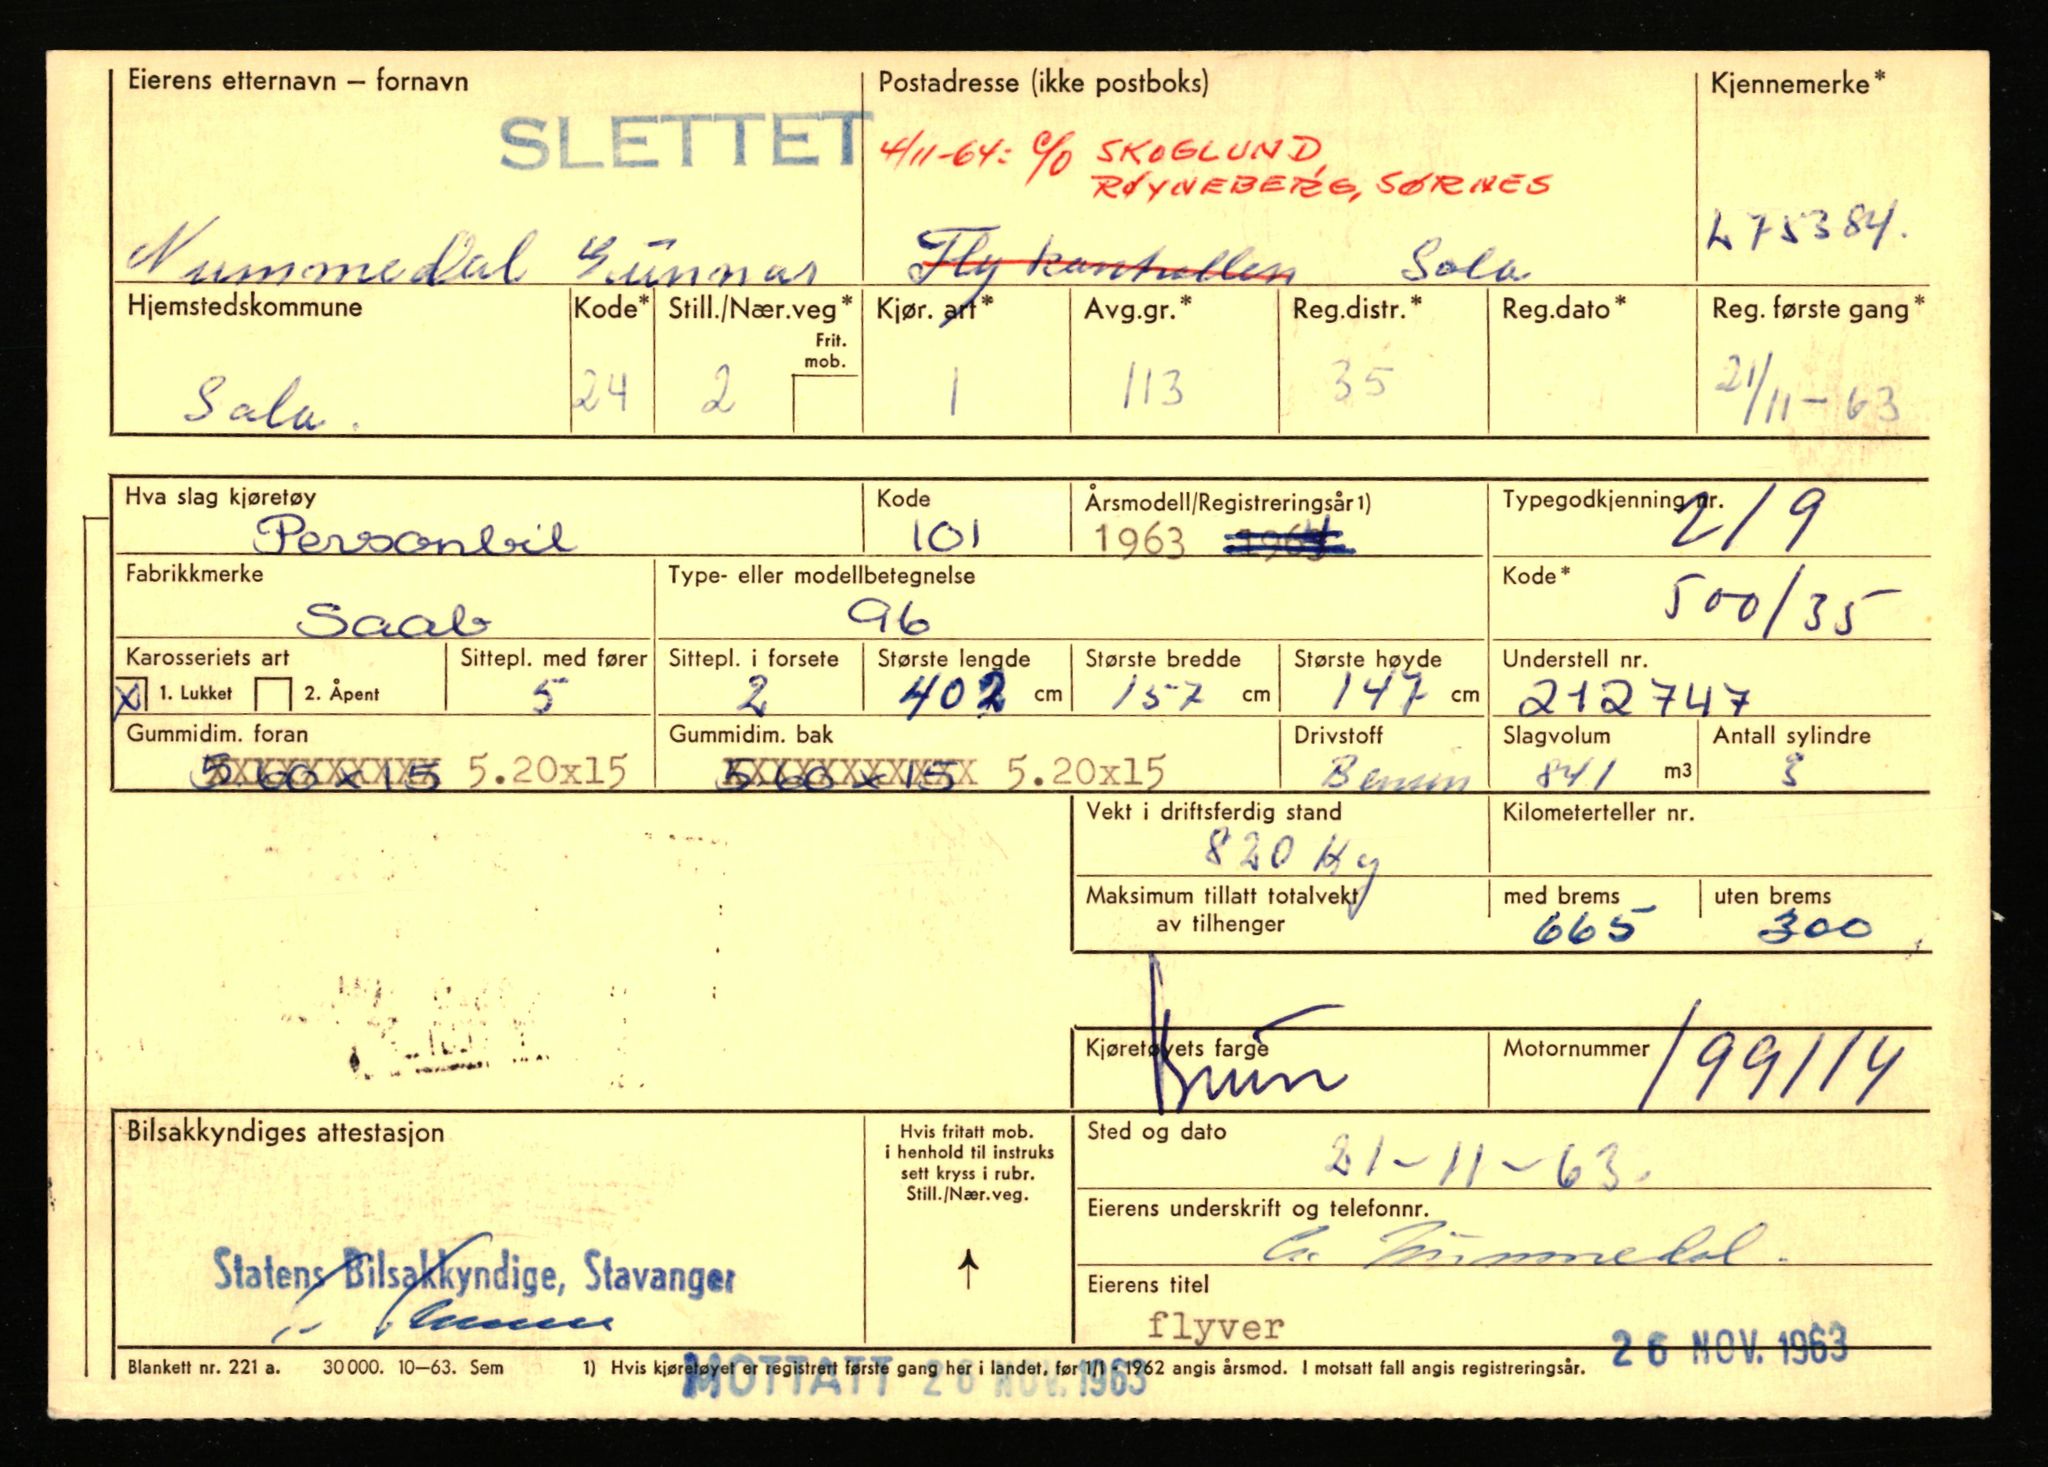 Eierens etternavn – fornavn
Postadresse (ikke postboks)
Kjennemerke*
SLETTET
4/11-64: c/o SKOGLUND,
RØYNEBERG, SØRNES
Nummedal Gunnar
Flykontrollen Sola
L 75384.
Hjemstedskommune
Kode*
Still./Nær.veg*
Frit. mob.
Kjør. art*
Avg.gr.*
Reg.distr.*
Reg.dato*
Reg. første gang*
Sola.
24
2
1
113
35
21/11-63
Hva slag kjøretøy
Kode
Årsmodell/Registreringsår1)
Typegodkjenning nr.
Personbil
101
1963 1964
219
Fabrikkmerke
Type- eller modellbetegnelse
Kode*
Saab
96
500/35
Karosseriets art
Sittepl. med fører
Sittepl. i forsete
Største lengde
Største bredde
Største høyde
Understell nr.
X 1. Lukket 2. Åpent
5
2
402 cm
157 cm
147 cm
212747
Gummidim. foran
Gummidim. bak
Drivstoff
Slagvolum
Antall sylindre
5 60 x 15 5.20x15
5 60 x 15 5.20x15
Bensin
841 m3
3
Vekt i driftsferdig stand
Kilometerteller nr.
820 Kg
Maksimum tillatt totalvekt
av tilhenger
med brems
uten brems
665
300
Kjøretøyets farge
Motornummer
Brun
199114
Bilsakkyndiges attestasjon
Hvis fritatt mob.
i henhold til instruks
sett kryss i rubr.
Still./Nær.veg.
Sted og dato
21-11-63.
Eierens underskrift og telefonnr.
G. Nummedal.
Statens Bilsakkyndige, Stavanger
Eierens titel
flyver
26 NOV. 1963
Blankett nr. 221 a. 30000. 10–63. Sem
1) Hvis kjøretøyet er registrert første gang her i landet, før 1/1 - 1962 angis årsmod. I motsatt fall angis registreringsår.
MOTTATT 26 NOV. 1963